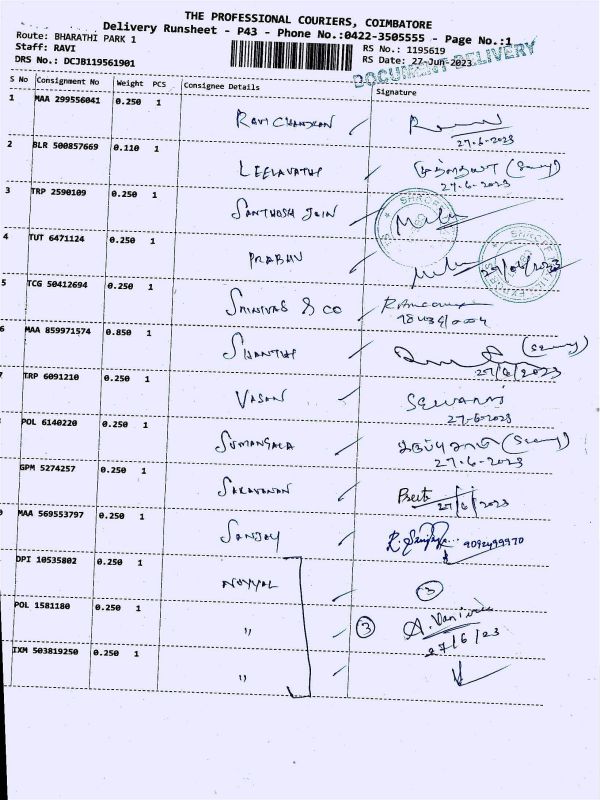 THE PROFESSIONAL COURIERS, COIMBATORE
Delivery Runsheet - P43 - Phone No.:0422-3505555 - Page No.:1
Route: BHARATHI PARK 1
RS No.: 1195619
Staff: RAVI
RS Date: 27-Jun-2023
DRS No.: DCJB119561901
DOCUMENT DELIVERY
S No Consignment No Weight PCS Consignee Details Signature
1 MAA 299556041 0.250 1 RAVI CHANDRAN
27-6-2023
2 BLR 500857669 0.110 1 LEELAVATHI
27-6-2023
3 TRP 2590109 0.250 1 SANTHOSH JAIN
4 TUT 6471124 0.250 1 PRABHU
5 TCG 50412694 0.250 1 SRINIVAS & CO
6 MAA 859971574 0.850 1 SHANTHI
27/6/2023
7 TRP 6091210 0.250 1 VASAN SELVARAJ
27-6-2023
POL 6140220 0.250 1 SUMANGALA
27-6-2023
GPM 5274257 0.250 1 SARAVANAN
27/6/2023
MAA 569553797 0.250 1 SANJAY
DPI 10535802 0.250 1 NOYYAL 3
POL 1581180 0.250 1 " 3
27/6/23
IXM 503819250 0.250 1 "